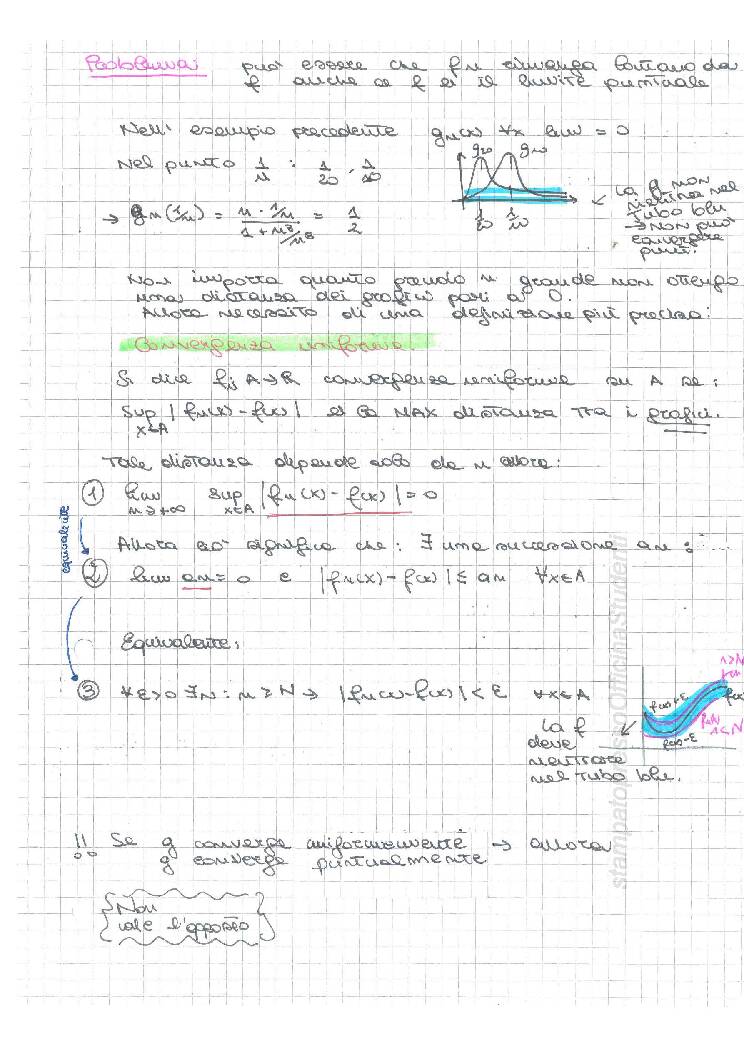 Problema: può essere che fn rimanga lontano da
f anche se f è il limite puntuale
Nell' esempio precedente gn(x) ∀x lim = 0
Nel punto 1/n : 1/20 , 1/10
g20 g10
→ gn(1/n) = n · 1/n / 1 + n⁸/n⁸ = 1/2
1/20 1/10
La g non
rientra nel
tubo blu
→ non può
convergere
Non importa quanto prendo n grande non ottengo
una distanza dei grafici pari a 0.
Allora necessito di una definizione più precisa:
Convergenza uniforme.
Si dice fn A→R convergenza uniforme su A se:
sup x∈A |fn(x) - f(x)| è la MAX distanza tra i grafici.
Tale distanza depende solo da n allora:
① lim n→+∞ sup x∈A |fn(x) - f(x)| = 0
equivalente
Allora ciò significa che: ∃ una successione an : ....
② lim an = 0 e |fn(x) - f(x)| ≤ an ∀x∈A
Equivalente:
③ ∀ε>0 ∃N : n ≥ N → |fn(x) - f(x)| < ε ∀x∈A
f(x)+ε
f(x)-ε
La f
deve
rientrare
nel tubo blu.
!! Se g converge uniformemente → allora
g converge puntualmente
Non
vale l'opposto
stampatopressoOfficinaStudenti